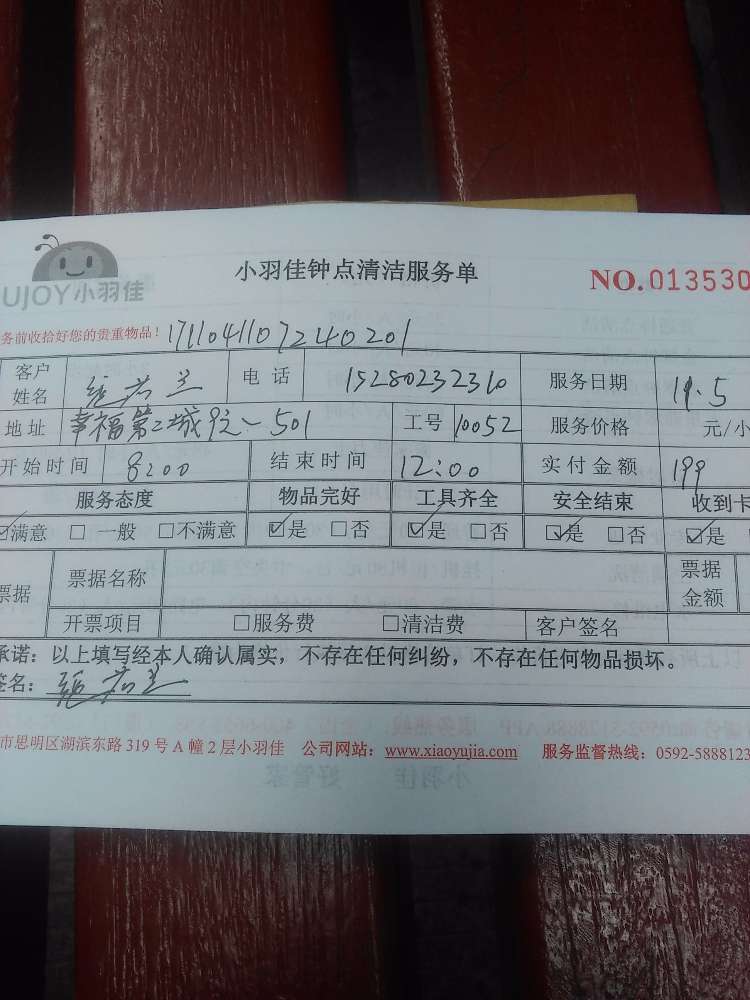 UJOY小羽佳
小羽佳钟点清洁服务单
NO.013530
务前收拾好您的贵重物品! 1711041107240201
客户姓名 电话 15280232310 服务日期 11.5
地址 幸福第二城 501 工号 10052 服务价格 元/小
开始时间 8:00 结束时间 12:00 实付金额 199
服务态度 物品完好 工具齐全 安全结束 收到卡
☑满意 □一般 □不满意 ☑是 □否 ☑是 □否 ☑是 □否 ☑是
票据 票据名称 票据金额
开票项目 □服务费 □清洁费 客户签名
承诺：以上填写经本人确认属实，不存在任何纠纷，不存在任何物品损坏。
签名：
市思明区湖滨东路 319 号 A 幢 2 层小羽佳 公司网站：www.xiaoyujia.com 服务监督热线：0592-5888123